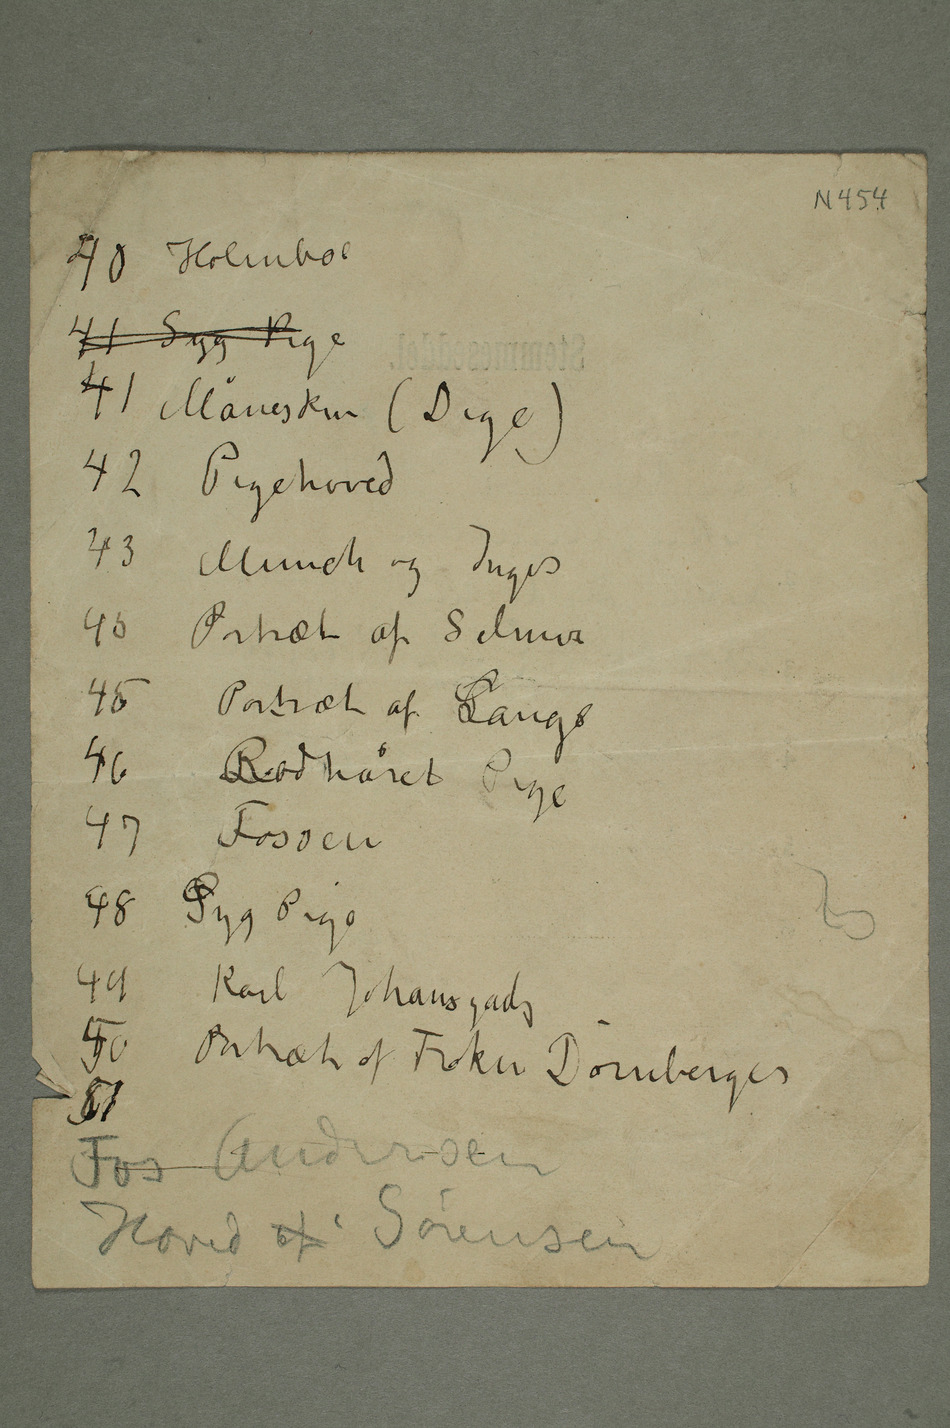 N 454
40 Holmboe
41 Syg Pige
41 Måneskin (Dige)
42 Pigehoved
43 Munch og Inges
45 Portræt af Selmer
45 Portræt af Lange
46 Rødhåret Pige
47 Fossen
48 Syg Pige
49 Karl Johansgade
50 Portræt af Frøken Dörnberger
51
Fos Andersen
Hoved af Sörensen
Stemmeseddel.